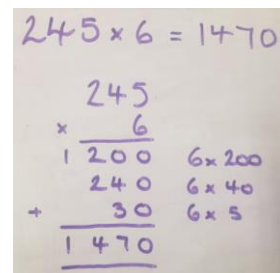 245 × 6 = 1470
245
× 6
1 200 6 × 200
240 6 × 40
+ 30 6 × 5
1 470